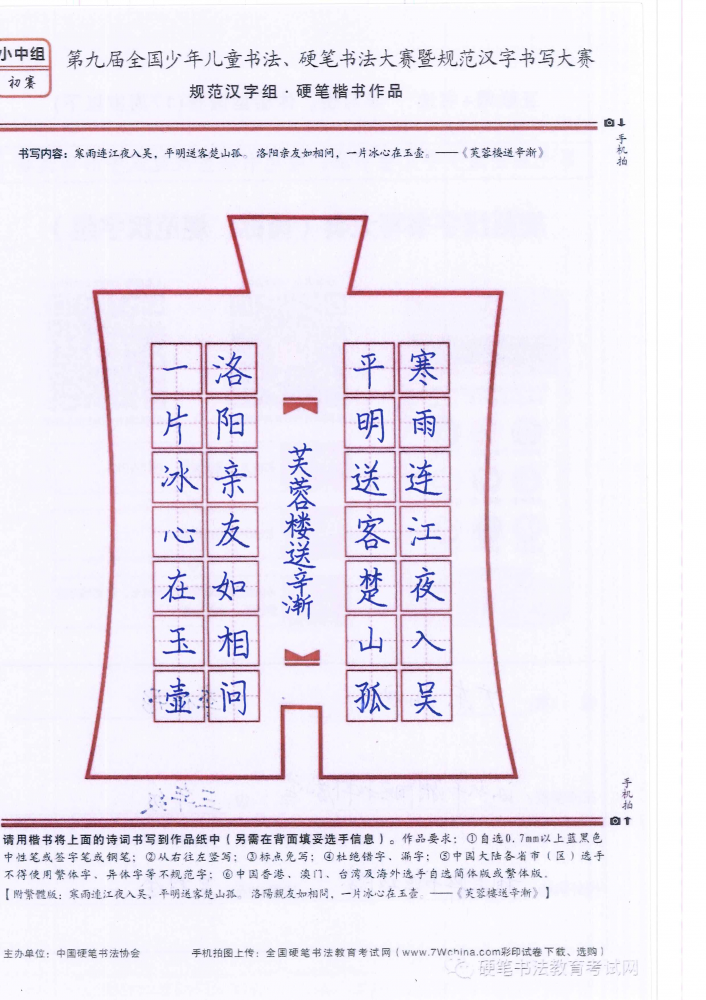 小中组
初赛
第九届全国少年儿童书法、硬笔书法大赛暨规范汉字书写大赛
规范汉字组·硬笔楷书作品
手机拍
书写内容：寒雨连江夜入吴，平明送客楚山孤。洛阳亲友如相问，一片冰心在玉壶。——《芙蓉楼送辛渐》
寒雨连江夜入吴
平明送客楚山孤
芙蓉楼送辛渐
洛阳亲友如相问
一片冰心在玉壶
手机拍
请用楷书将上面的诗词书写到作品纸中（另需在背面填妥选手信息）。作品要求：①自选0.7mm以上蓝黑色
中性笔或签字笔或钢笔；②从右往左竖写；③标点免写；④杜绝错字、漏字；⑤中国大陆各省市（区）选手
不得使用繁体字、异体字等不规范字；⑥中国香港、澳门、台湾及海外选手自选简体版或繁体版。
【附繁體版：寒雨連江夜入吳，平明送客楚山孤。洛陽親友如相問，一片冰心在玉壺。——《芙蓉樓送辛漸》】
主办单位：中国硬笔书法协会
手机拍图上传：全国硬笔书法教育考试网（www.7Wchina.com彩印试卷下载、选购）
硬笔书法教育考试网